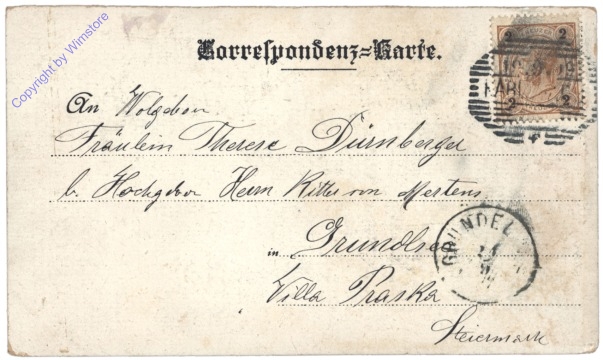 Copyright by Wimstore
Correspondenz-Karte.
2 2
2 2
An Wolgebor
Fräulein Therese Dürnberger
b. Hochgebor Herrn Ritter von Mertens
in Grundlsee
GRUNDEL
Villa Praska
Steiermark